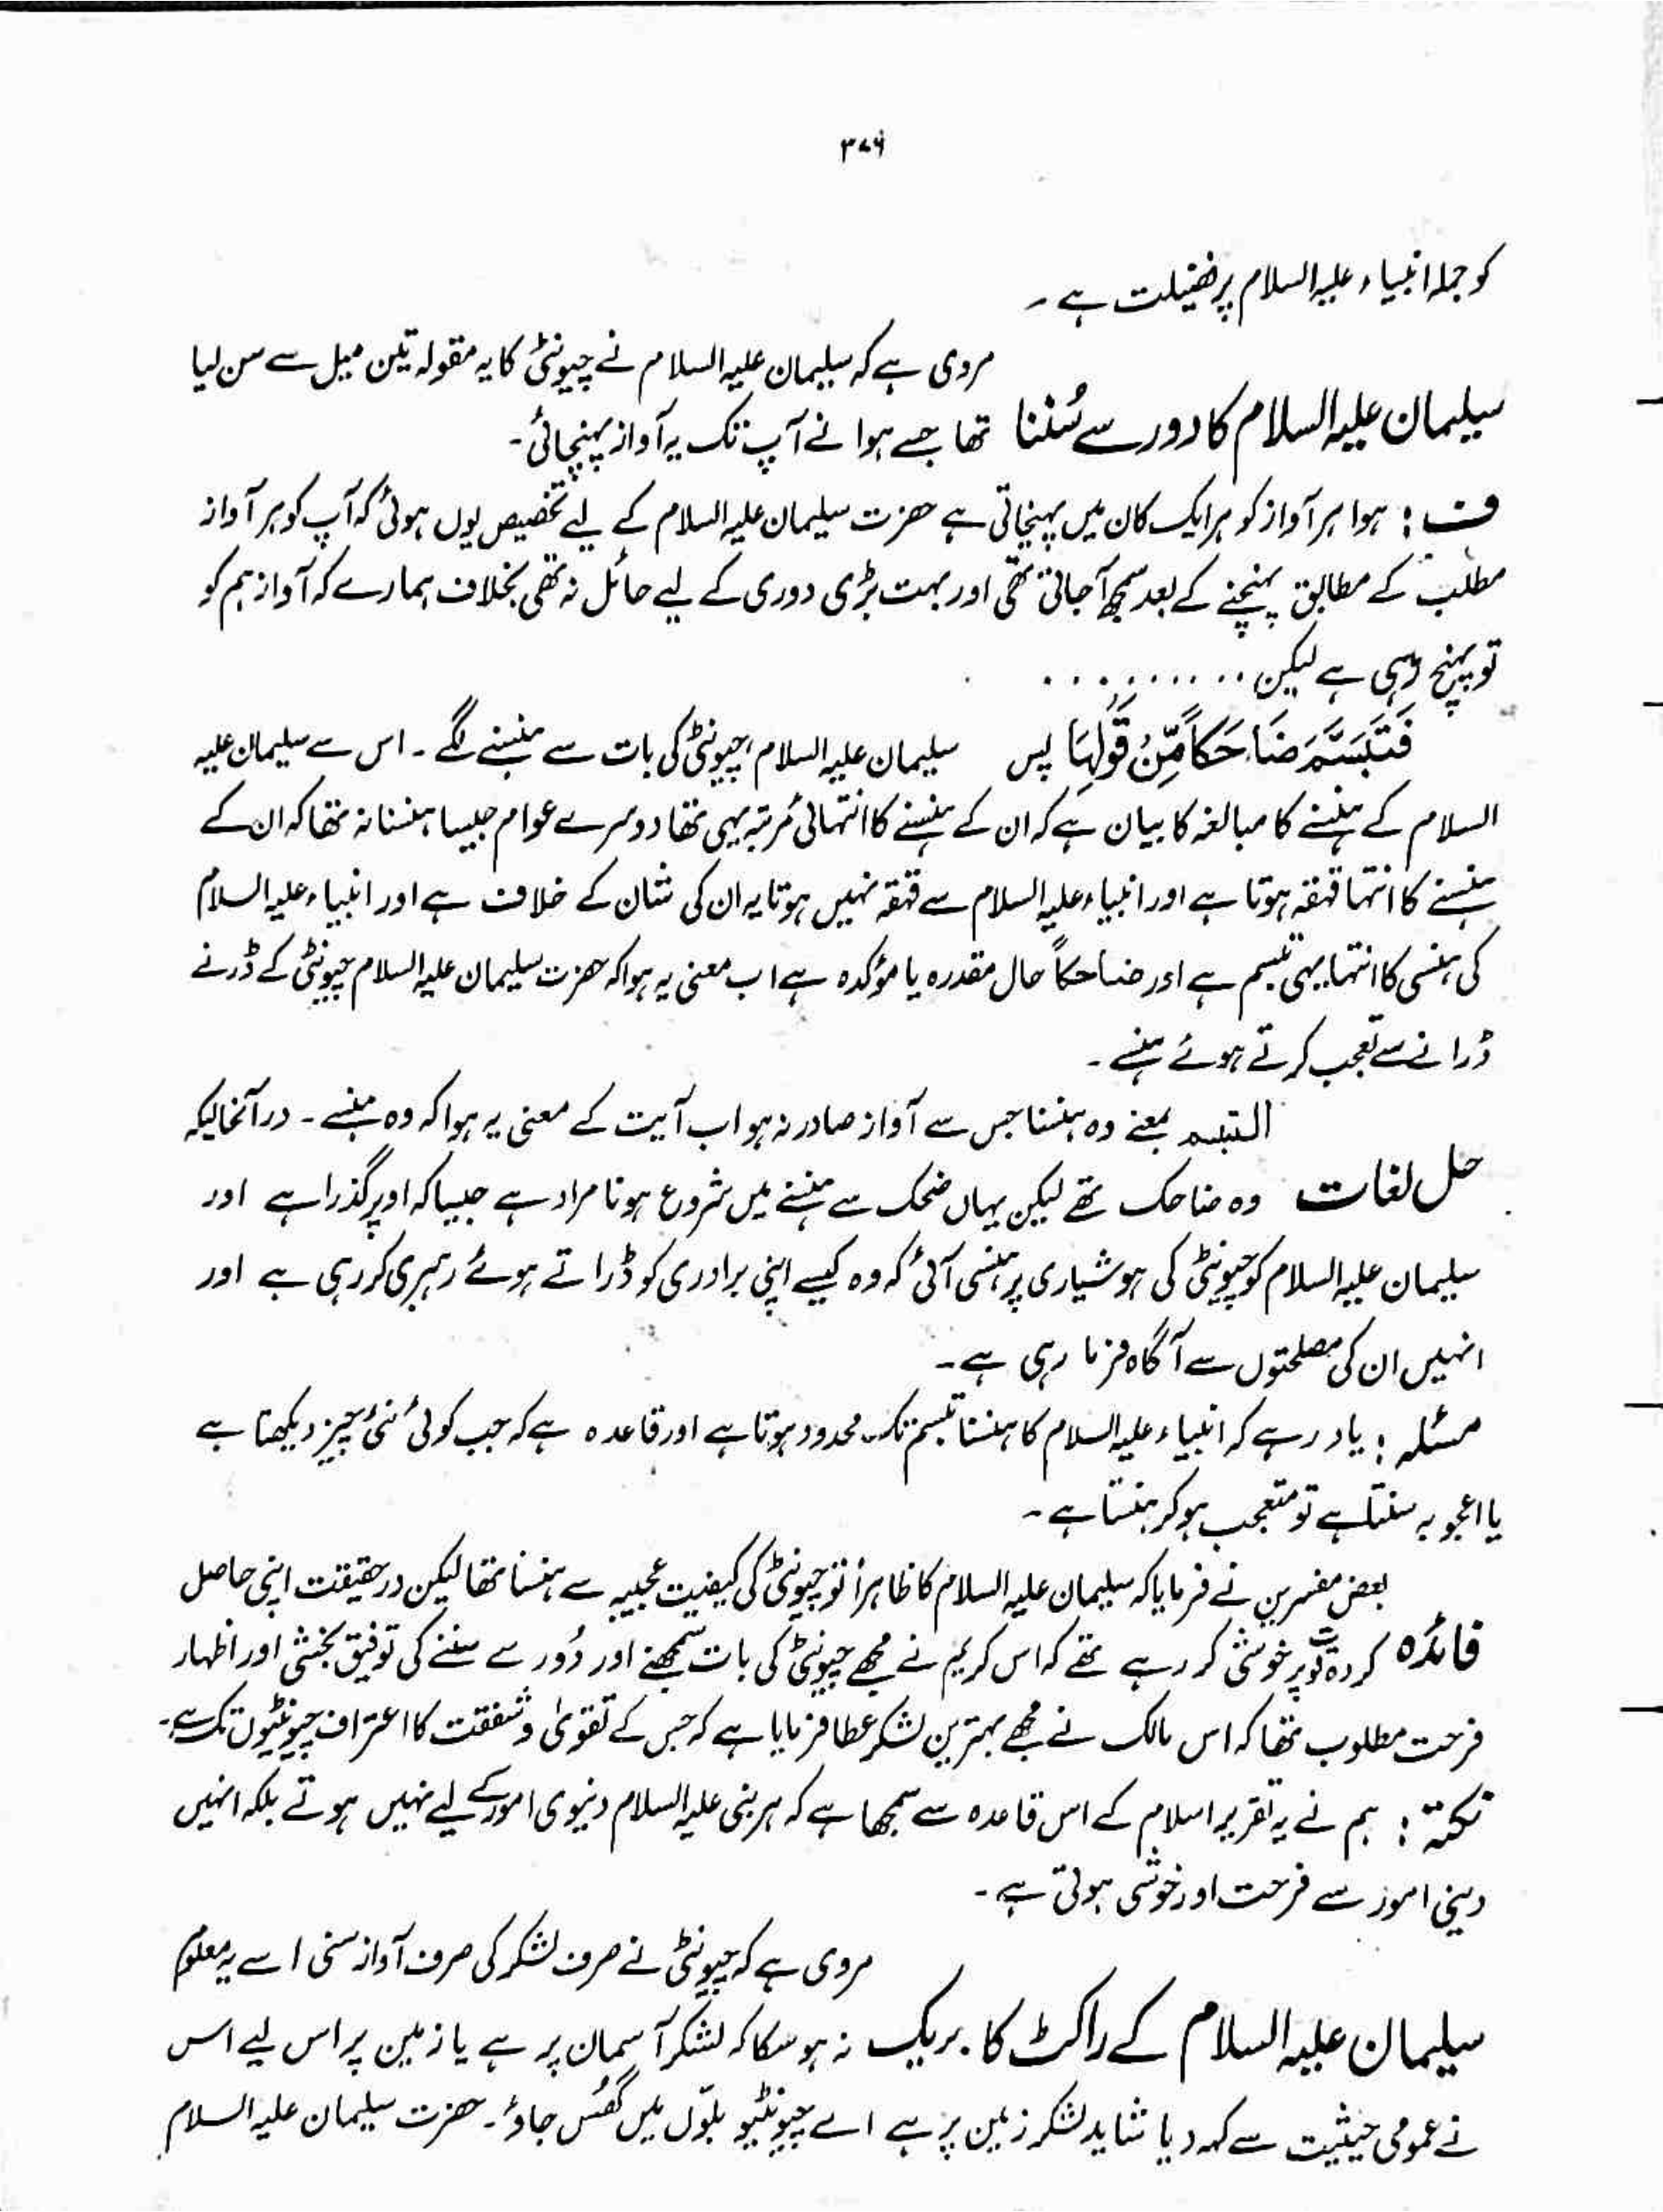 ۳۷۶
کو جملہ انبیاء علیہ السلام پر فضیلت ہے ۔
مروی ہے کہ سلیمان علیہ السلام نے چیونٹی کا یہ مقولہ تین میل سے سن لیا
سلیمان علیہ السلام کا دور سے سُننا تھا جسے ہوا نے آپ تک یہ آواز پہنچائی ۔
ف : ہوا ہر آواز کو ہر ایک کان میں پہنچاتی ہے حضرت سلیمان علیہ السلام کے لیے تخصیص یوں ہوئی کہ آپ کو ہر آواز
مطلب کے مطابق پہنچنے کے بعد سمجھ آجاتی تھی اور بہت بڑی دوری کے لیے حائل نہ تھی بخلاف ہمارے کہ آواز ہم کو
تو پہنچ رہی ہے لیکن . . . . . . . . . .
فَتَبَسَّمَ ضَاحِكًا مِّنْ قَوْلِهَا پس سلیمان علیہ السلام، چیونٹی کی بات سے ہنسنے لگے ۔ اس سے سلیمان علیہ
السلام کے ہنسنے کا مبالغہ کا بیان ہے کہ ان کے ہنسنے کا انتہائی مرتبہ یہی تھا دوسرے عوام جیسا ہنسنا نہ تھا کہ ان کے
ہنسنے کا انتہا قہقہ ہوتا ہے اور انبیاء علیہ السلام سے قہقہ نہیں ہوتا یہ ان کی شان کے خلاف ہے اور انبیاء علیہ السلام
کی ہنسی کا انتہا یہی تبسم ہے اور ضاحکاً حال مقدرہ یا مؤکدہ ہے اب معنی یہ ہوا کہ حضرت سلیمان علیہ السلام چیونٹی کے ڈرنے
ڈرانے سے تعجب کرتے ہوئے ہنسے ۔
التبسم بمعنے وہ ہنسنا جس سے آواز صادر نہ ہو اب آیت کے معنی یہ ہوا کہ وہ ہنسے ۔ درآنحالیکہ
حل لغات وہ ضاحک تھے لیکن یہاں ضحک سے ہنسنے میں شروع ہونا مراد ہے جیسا کہ اوپر گذرا ہے اور
سلیمان علیہ السلام کو چیونٹی کی ہوشیاری پر ہنسی آئی کہ وہ کیسے اپنی برادری کو ڈراتے ہوئے رہبری کر رہی ہے اور
انہیں ان کی مصلحتوں سے آگاہ فرما رہی ہے ۔
مسئلہ : یاد رہے کہ انبیاء علیہ السلام کا ہنسنا تبسم تک محدود ہوتا ہے اور قاعدہ ہے کہ جب کوئی نئی چیز دیکھتا ہے
یا اعجوبہ سنتا ہے تو متعجب ہو کر ہنستا ہے ۔
بعض مفسرین نے فرمایا کہ سلیمان علیہ السلام کا ظاہراً تو چیونٹی کی کیفیت عجیبہ سے ہنسنا تھا لیکن درحقیقت اپنی حاصل
فائدہ کردہ قوت پر خوشی کر رہے تھے کہ اس کریم نے مجھے چیونٹی کی بات سمجھنے اور دُور سے سننے کی توفیق بخشی اور اظہار
فرحت مطلوب تھا کہ اس مالک نے مجھے بہترین لشکر عطا فرمایا ہے کہ جس کے تقویٰ و شفقت کا اعتراف چیونٹیوں تک ہے ۔
نکتہ : ہم نے یہ تقریر اسلام کے اس قاعدہ سے سمجھا ہے کہ ہر نبی علیہ السلام دنیوی امور کے لیے نہیں ہوتے بلکہ انہیں
دینی امور سے فرحت اور خوشی ہوتی ہے ۔
مروی ہے کہ چیونٹی نے صرف لشکر کی صرف آواز سنی اسے یہ معلوم
سلیمان علیہ السلام کے راکٹ کا بریک نہ ہو سکا کہ لشکر آسمان پر ہے یا زمین پر اس لیے اس
نے عمومی حیثیت سے کہہ دیا شاید لشکر زمین پر ہے اے چیونٹیو بلوں میں گھُس جاؤ ۔ حضرت سلیمان علیہ السلام